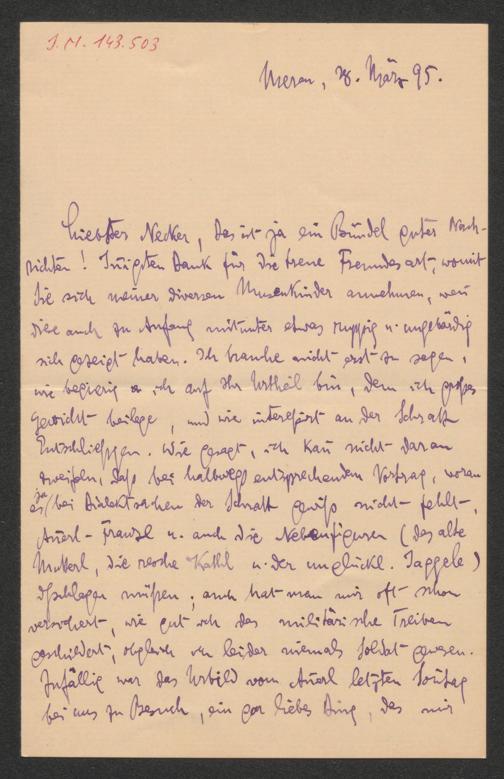 I.N. 143.503
Meran, 28. März 95.
Liebster Necker, das ist ja ein Bündel guter Nach-
richten! Innigsten Dank für die treue Freundesart, womit
Sie sich meiner diversen Musenkinder annehmen, wenn
diese auch zu Anfang mitunter etwas ruppig u. ungebärdig
sich gezeigt haben. Ich brauche nicht erst zu sagen,
wie begierig ich auf Ihr Urtheil bin, dem ich großes
Gewicht beilege, und wie interessirt an der Schratt
Entschließungen. Wie gesagt, ich kann nicht daran
zweifeln, daß bei halbwegs entsprechendem Vortrag, woran
es ja bei Dialektsachen der Schratt gewiß nicht fehlt,
Auerl-Franzl u. auch die Nebenfiguren (das alte
Mutterl, die resche Kathl u. der unglückl. Jaggele)
schlagen müssen; auch hat man mir oft schon
versichert, wie gut ich das militärische Treiben
geschildert, obgleich ich leider niemals Soldat gewesen.
Zufällig war das Urbild vom Auerl letzten Sonntag
bei uns zu Besuch, ein gar liebes Ding, das mir